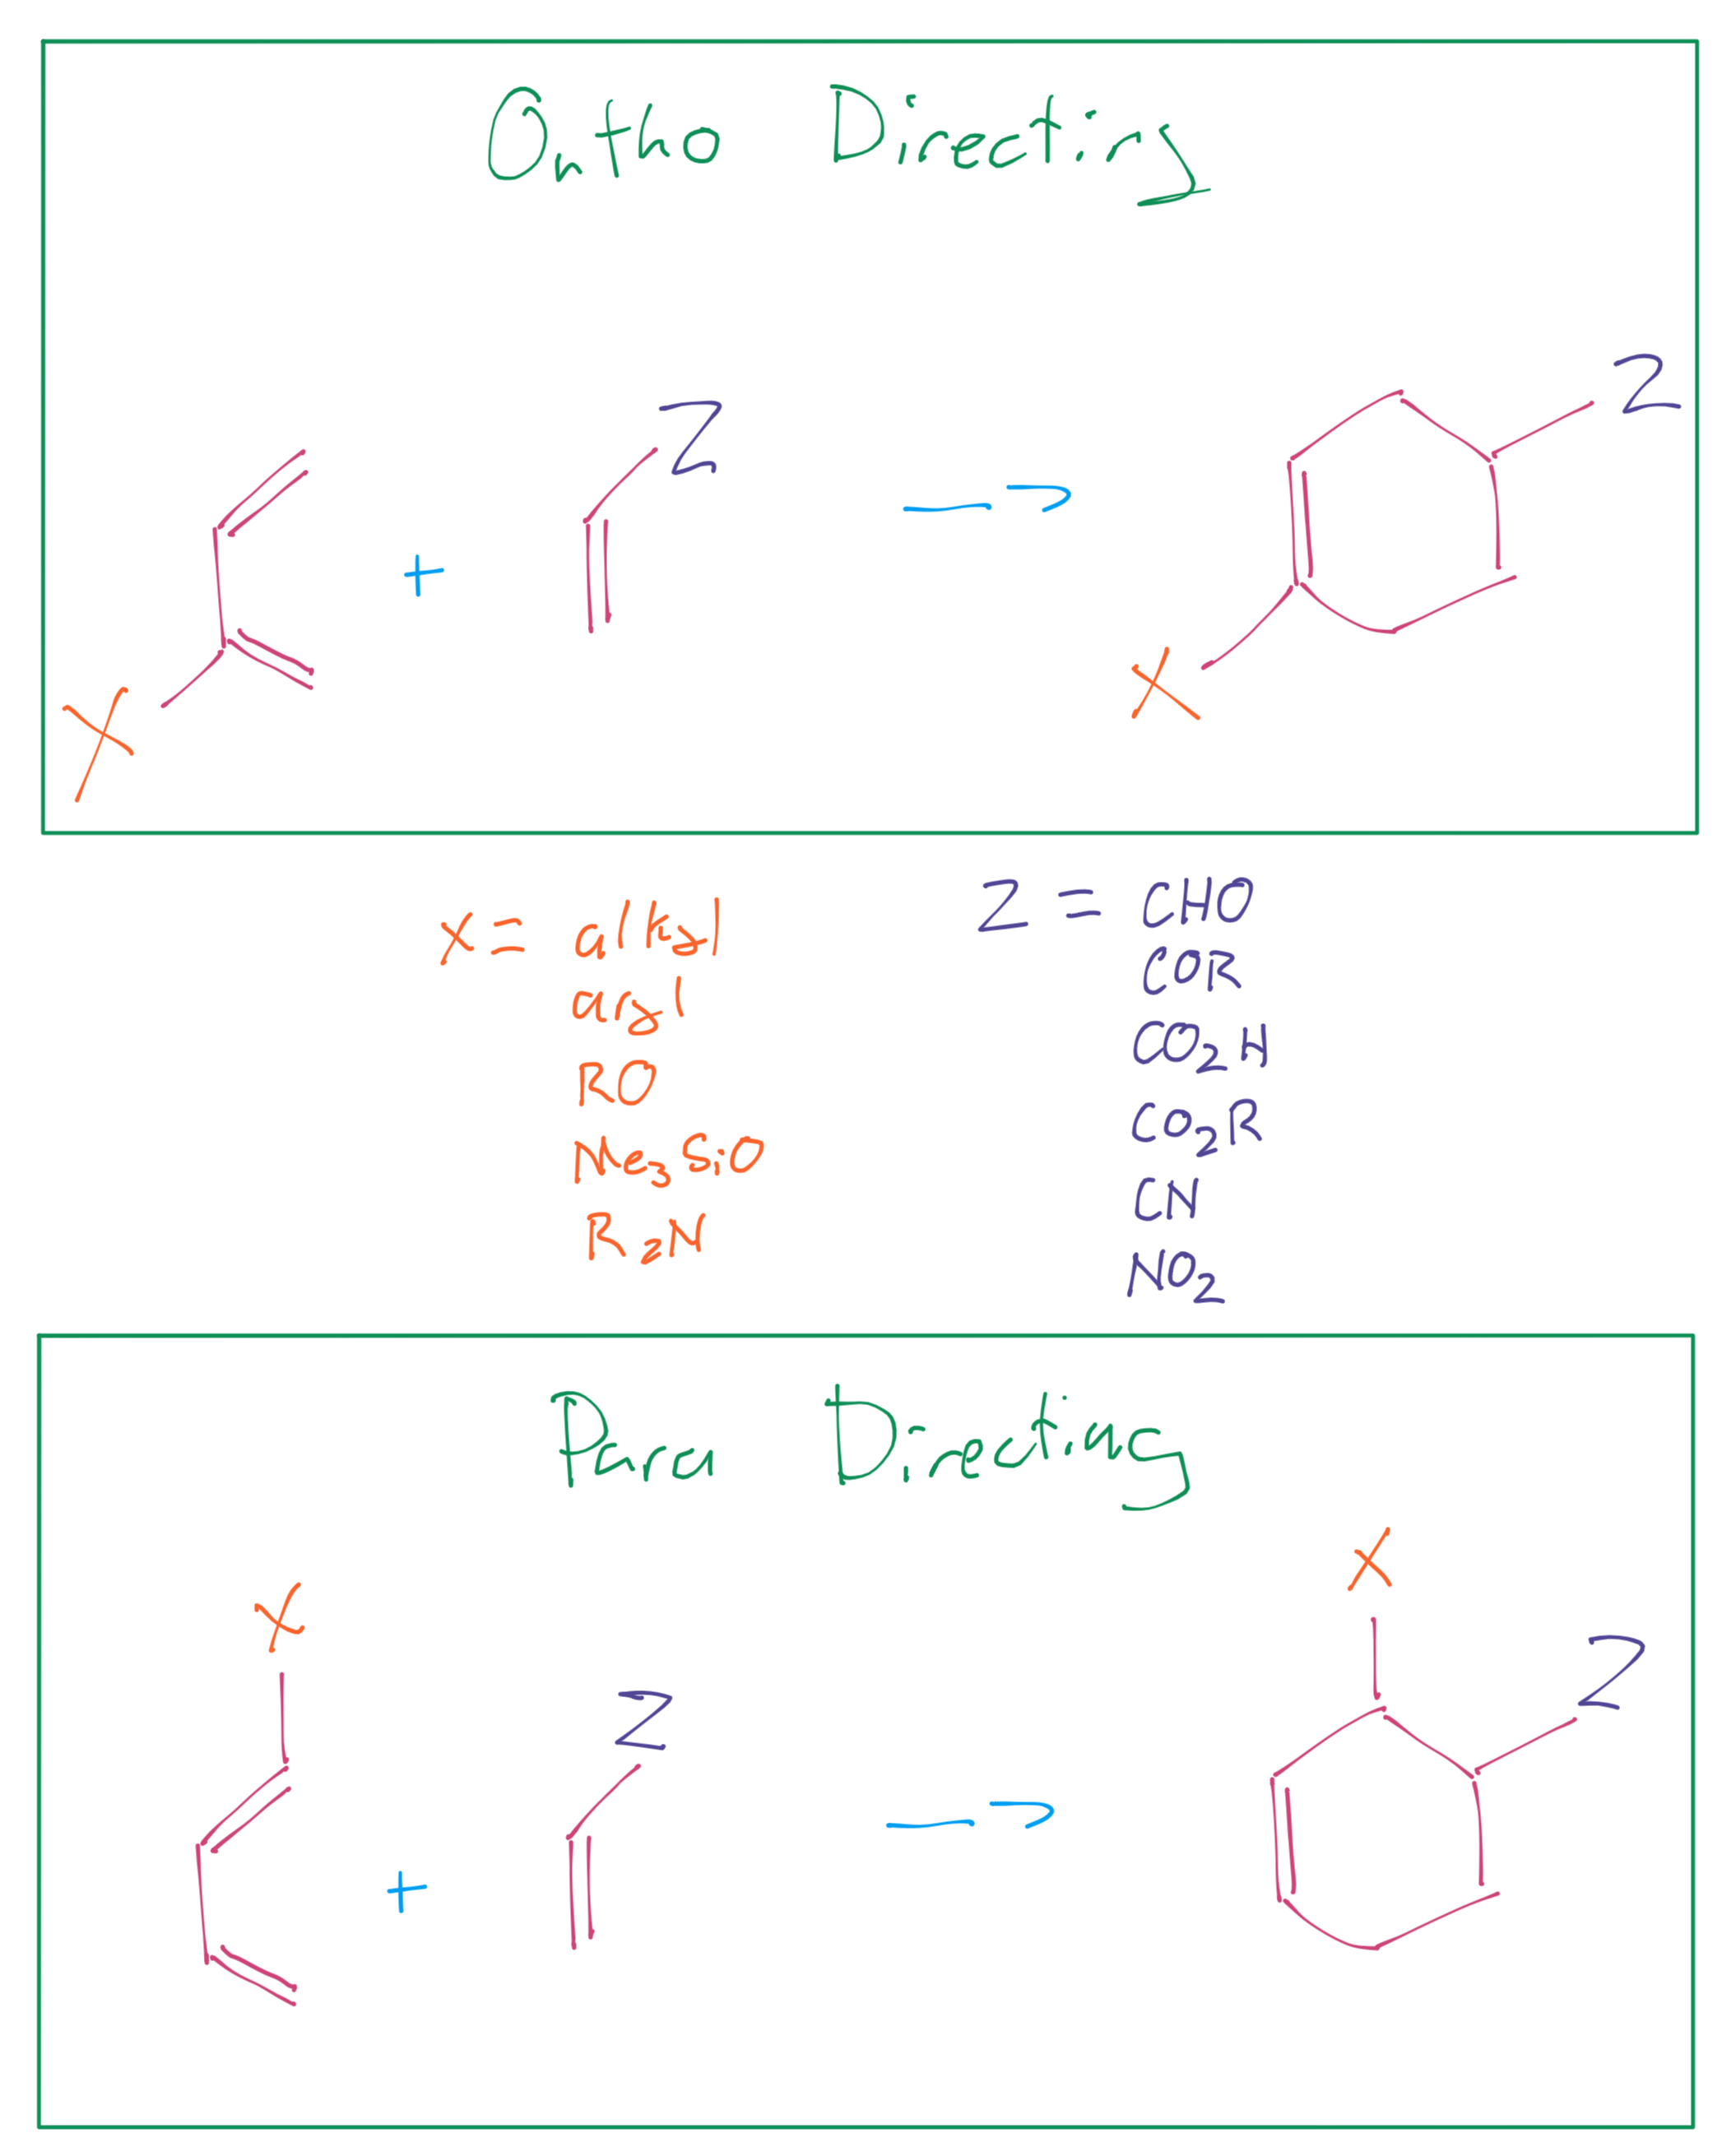 Ortho Directing
Z
Z
+
X
X
X = alkyl
aryl
RO
Me₃SiO
R₂N
Z = CHO
COR
CO₂H
CO₂R
CN
NO₂
Para Directing
X
X
Z
Z
+